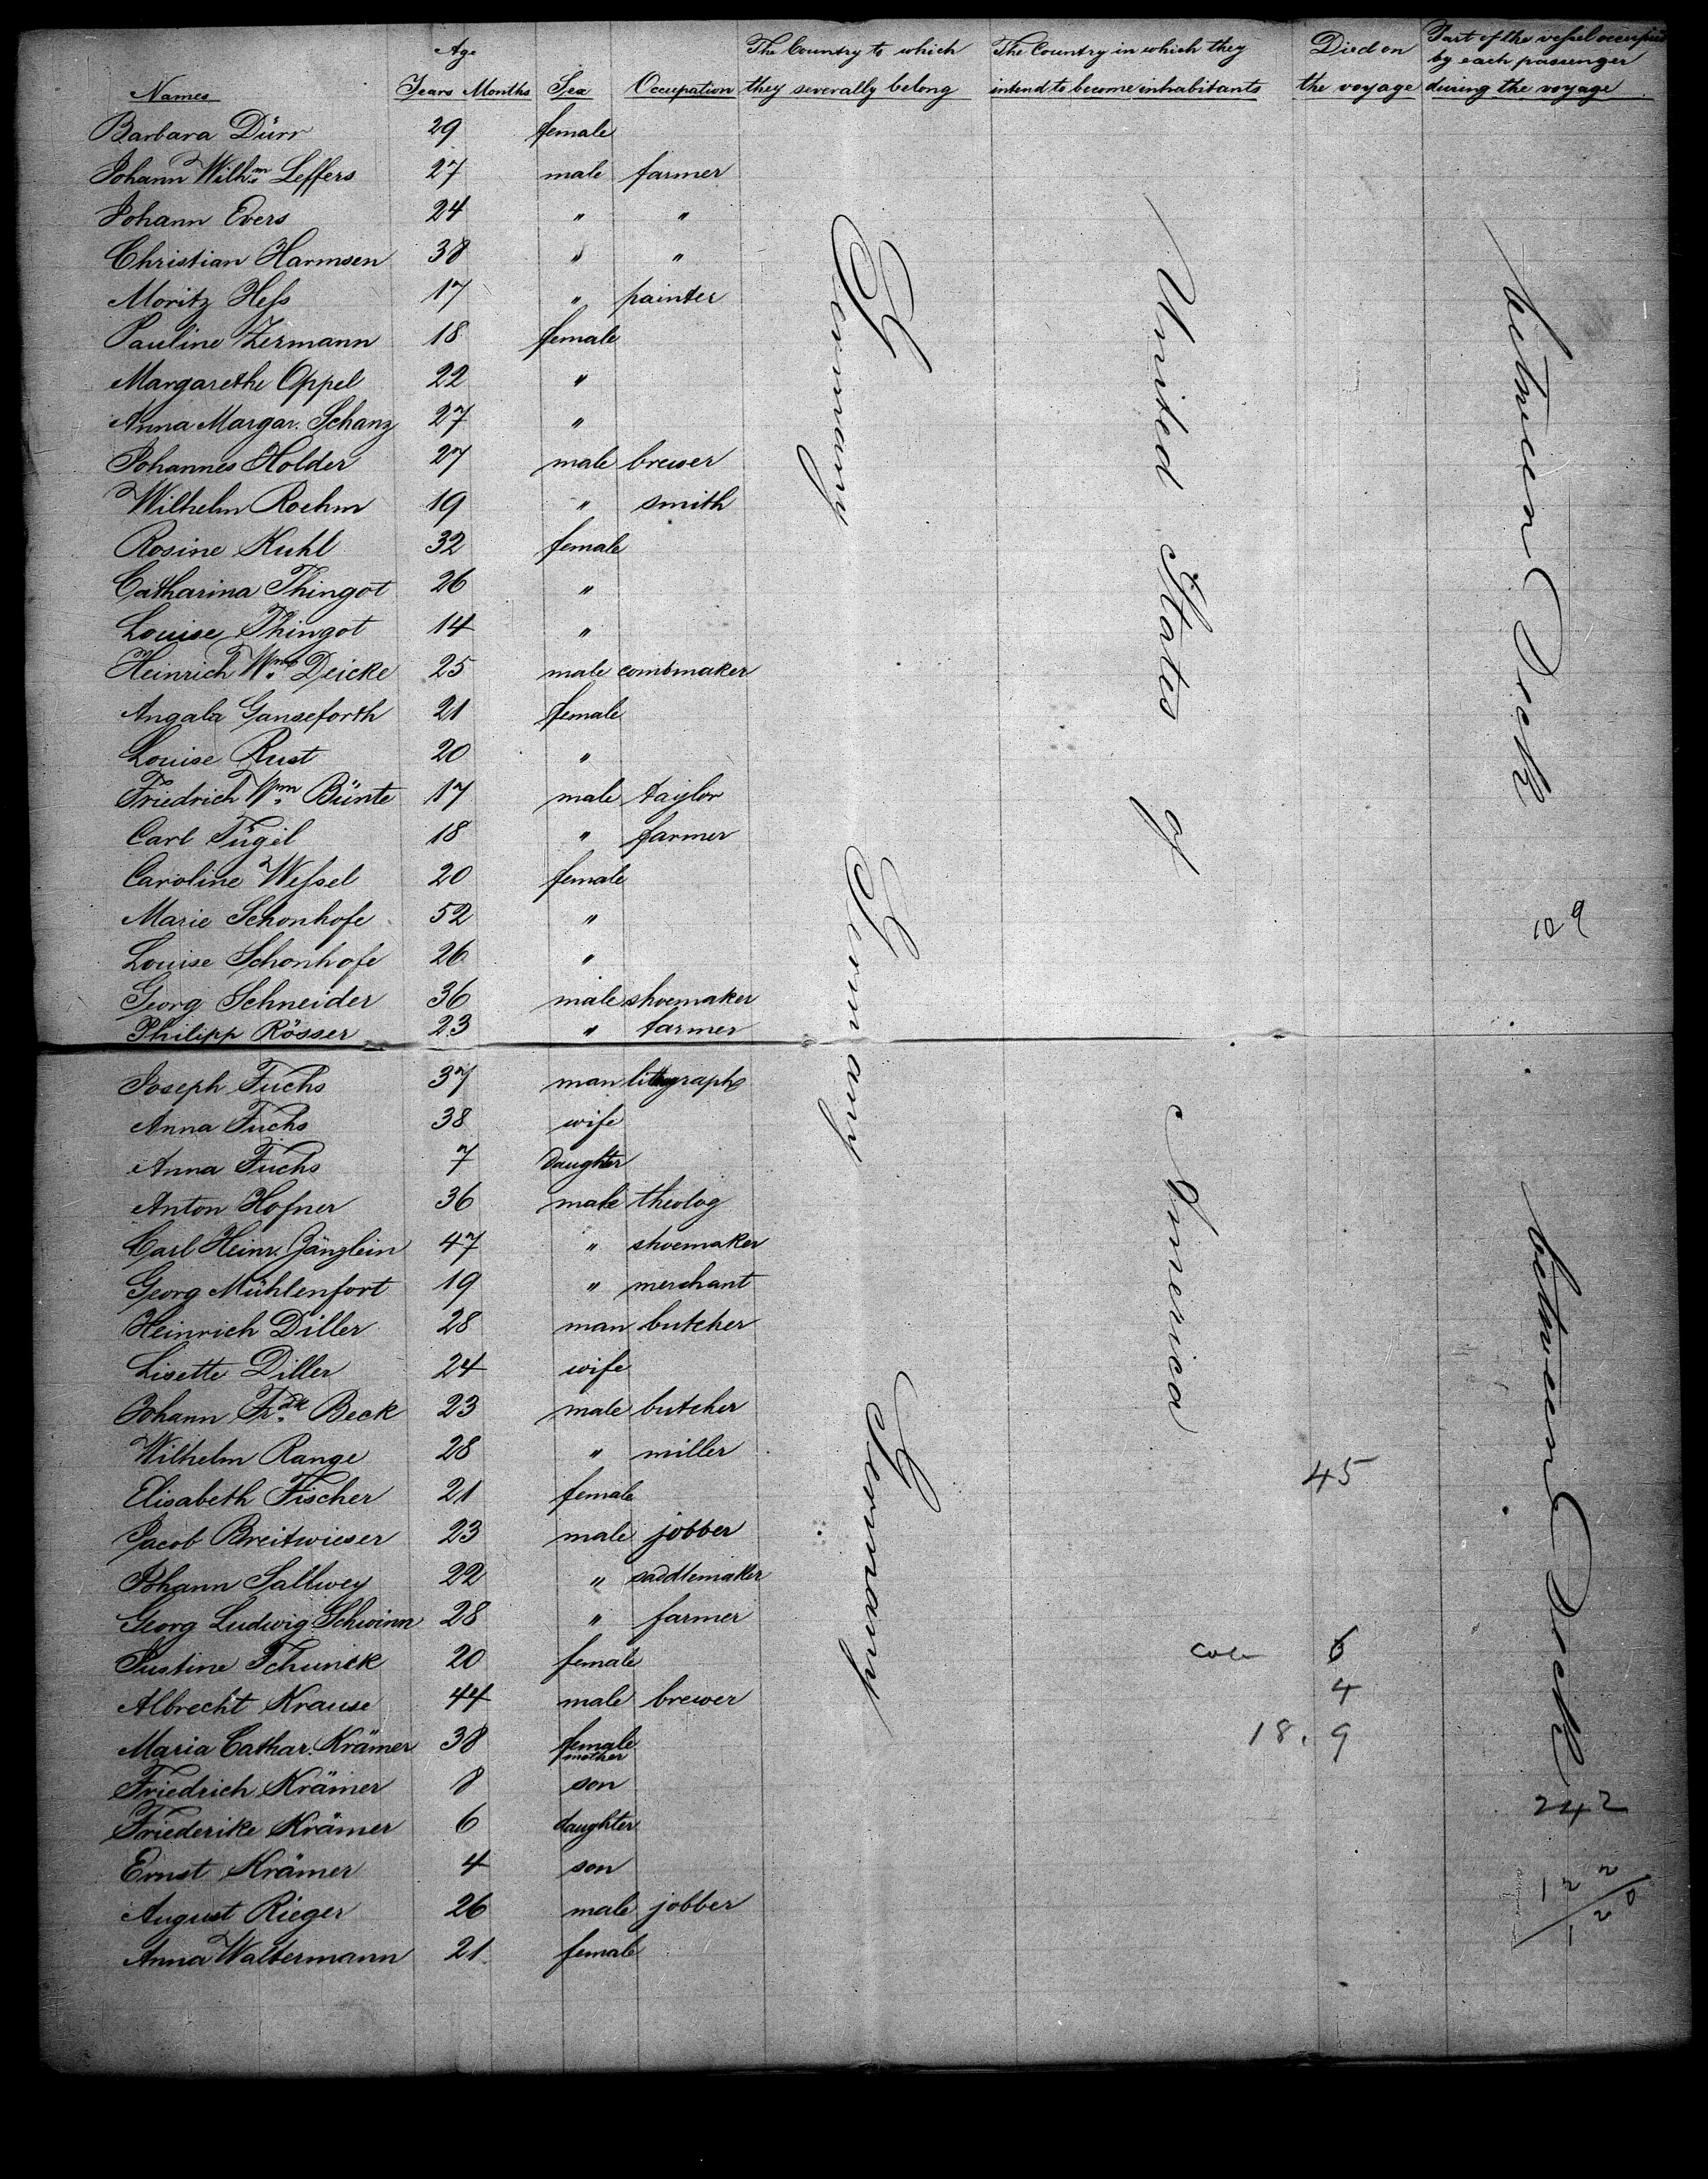 Age The Country to which The Country in which they Died on Part of the vessel occupied
by each passenger
Names Years Months Sex Occupation they severally belong intend to become inhabitants the voyage during the voyage
Barbara Dürr 29 female
Johann Wilhm Leffers 27 male farmer
Johann Evers 24 " "
Christian Harmsen 38 " "
Moritz Hess 17 " painter
Pauline Zermann 18 female
Margarethe Oppel 22 "
Anna Margar. Schanz 27 "
Johannes Holder 27 male brewer
Wilhelm Roehm 19 " smith
Rosine Kuhl 32 female
Catharina Thingot 26 "
Louise Thingot 14 "
Heinrich Wm Deicke 25 male combmaker
Angala Ganseforth 21 female
Louise Rust 20 "
Friedrich Wm Bünte 17 male taylor
Carl Tügel 18 " farmer
Caroline Wessel 20 female
Marie Schonhofe 52 "
Louise Schonhofe 26 "
Georg Schneider 36 male shoemaker
Philipp Rösser 23 " farmer
Joseph Fuchs 37 man lithograph
Anna Fuchs 38 wife
Anna Fuchs 7 daughter
Anton Hofner 36 male theolog
Carl Heinr. Zänglein 47 " shoemaker
Georg Mühlenfort 19 " merchant
Heinrich Diller 28 man butcher
Lisette Diller 24 wife
Johann Frdk Beck 23 male butcher
Wilhelm Range 28 " miller
45
Elisabeth Fischer 21 female
Jacob Breitwieser 23 male jobber
Johann Sallwey 22 " saddlemaker
Georg Ludwig Schwinn 28 " farmer
Justine Tchunck 20 female 6
Albrecht Krause 44 male brewer 4
Maria Cathar. Krämer 38 female 18. 9
mother
Friedrich Krämer 8 son
242
Friederike Krämer 6 daughter
Ernst Krämer 4 son
August Rieger 26 male jobber
Anna Waltermann 21 female
Germany
Germany
Germany
United States of America
between Deck
between Deck